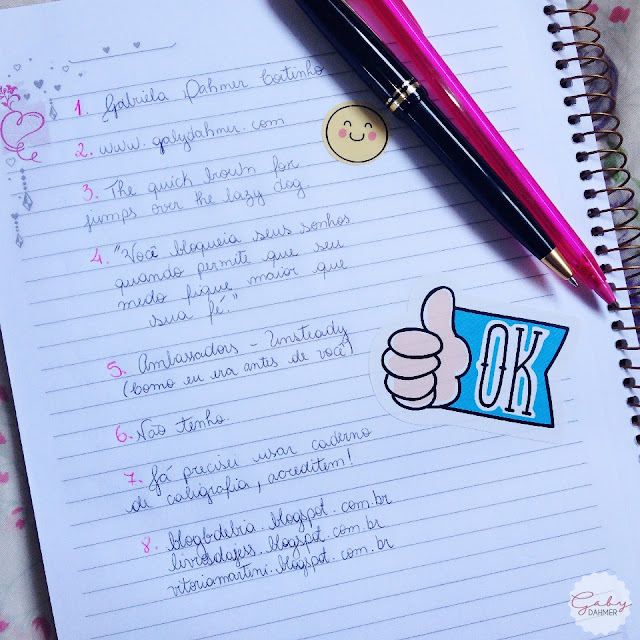 1. Gabriela Dahmer Coitinho
2. www.gabydahmer.com
3. The quick brown fox
jumps over the lazy dog.
4. "Você bloqueia seus sonhos
quando permite que seu
medo fique maior que
sua fé."
5. Ambassadors - Unsteady
(Como eu era antes de você)
6. Não tenho.
7. Já precisei usar caderno
de caligrafia, acreditem!
8. blogbdebia.blogspot.com.br
livrosdajess.blogspot.com.br
vitoriamartini.blogspot.com.br
OK
Gaby
DAHMER